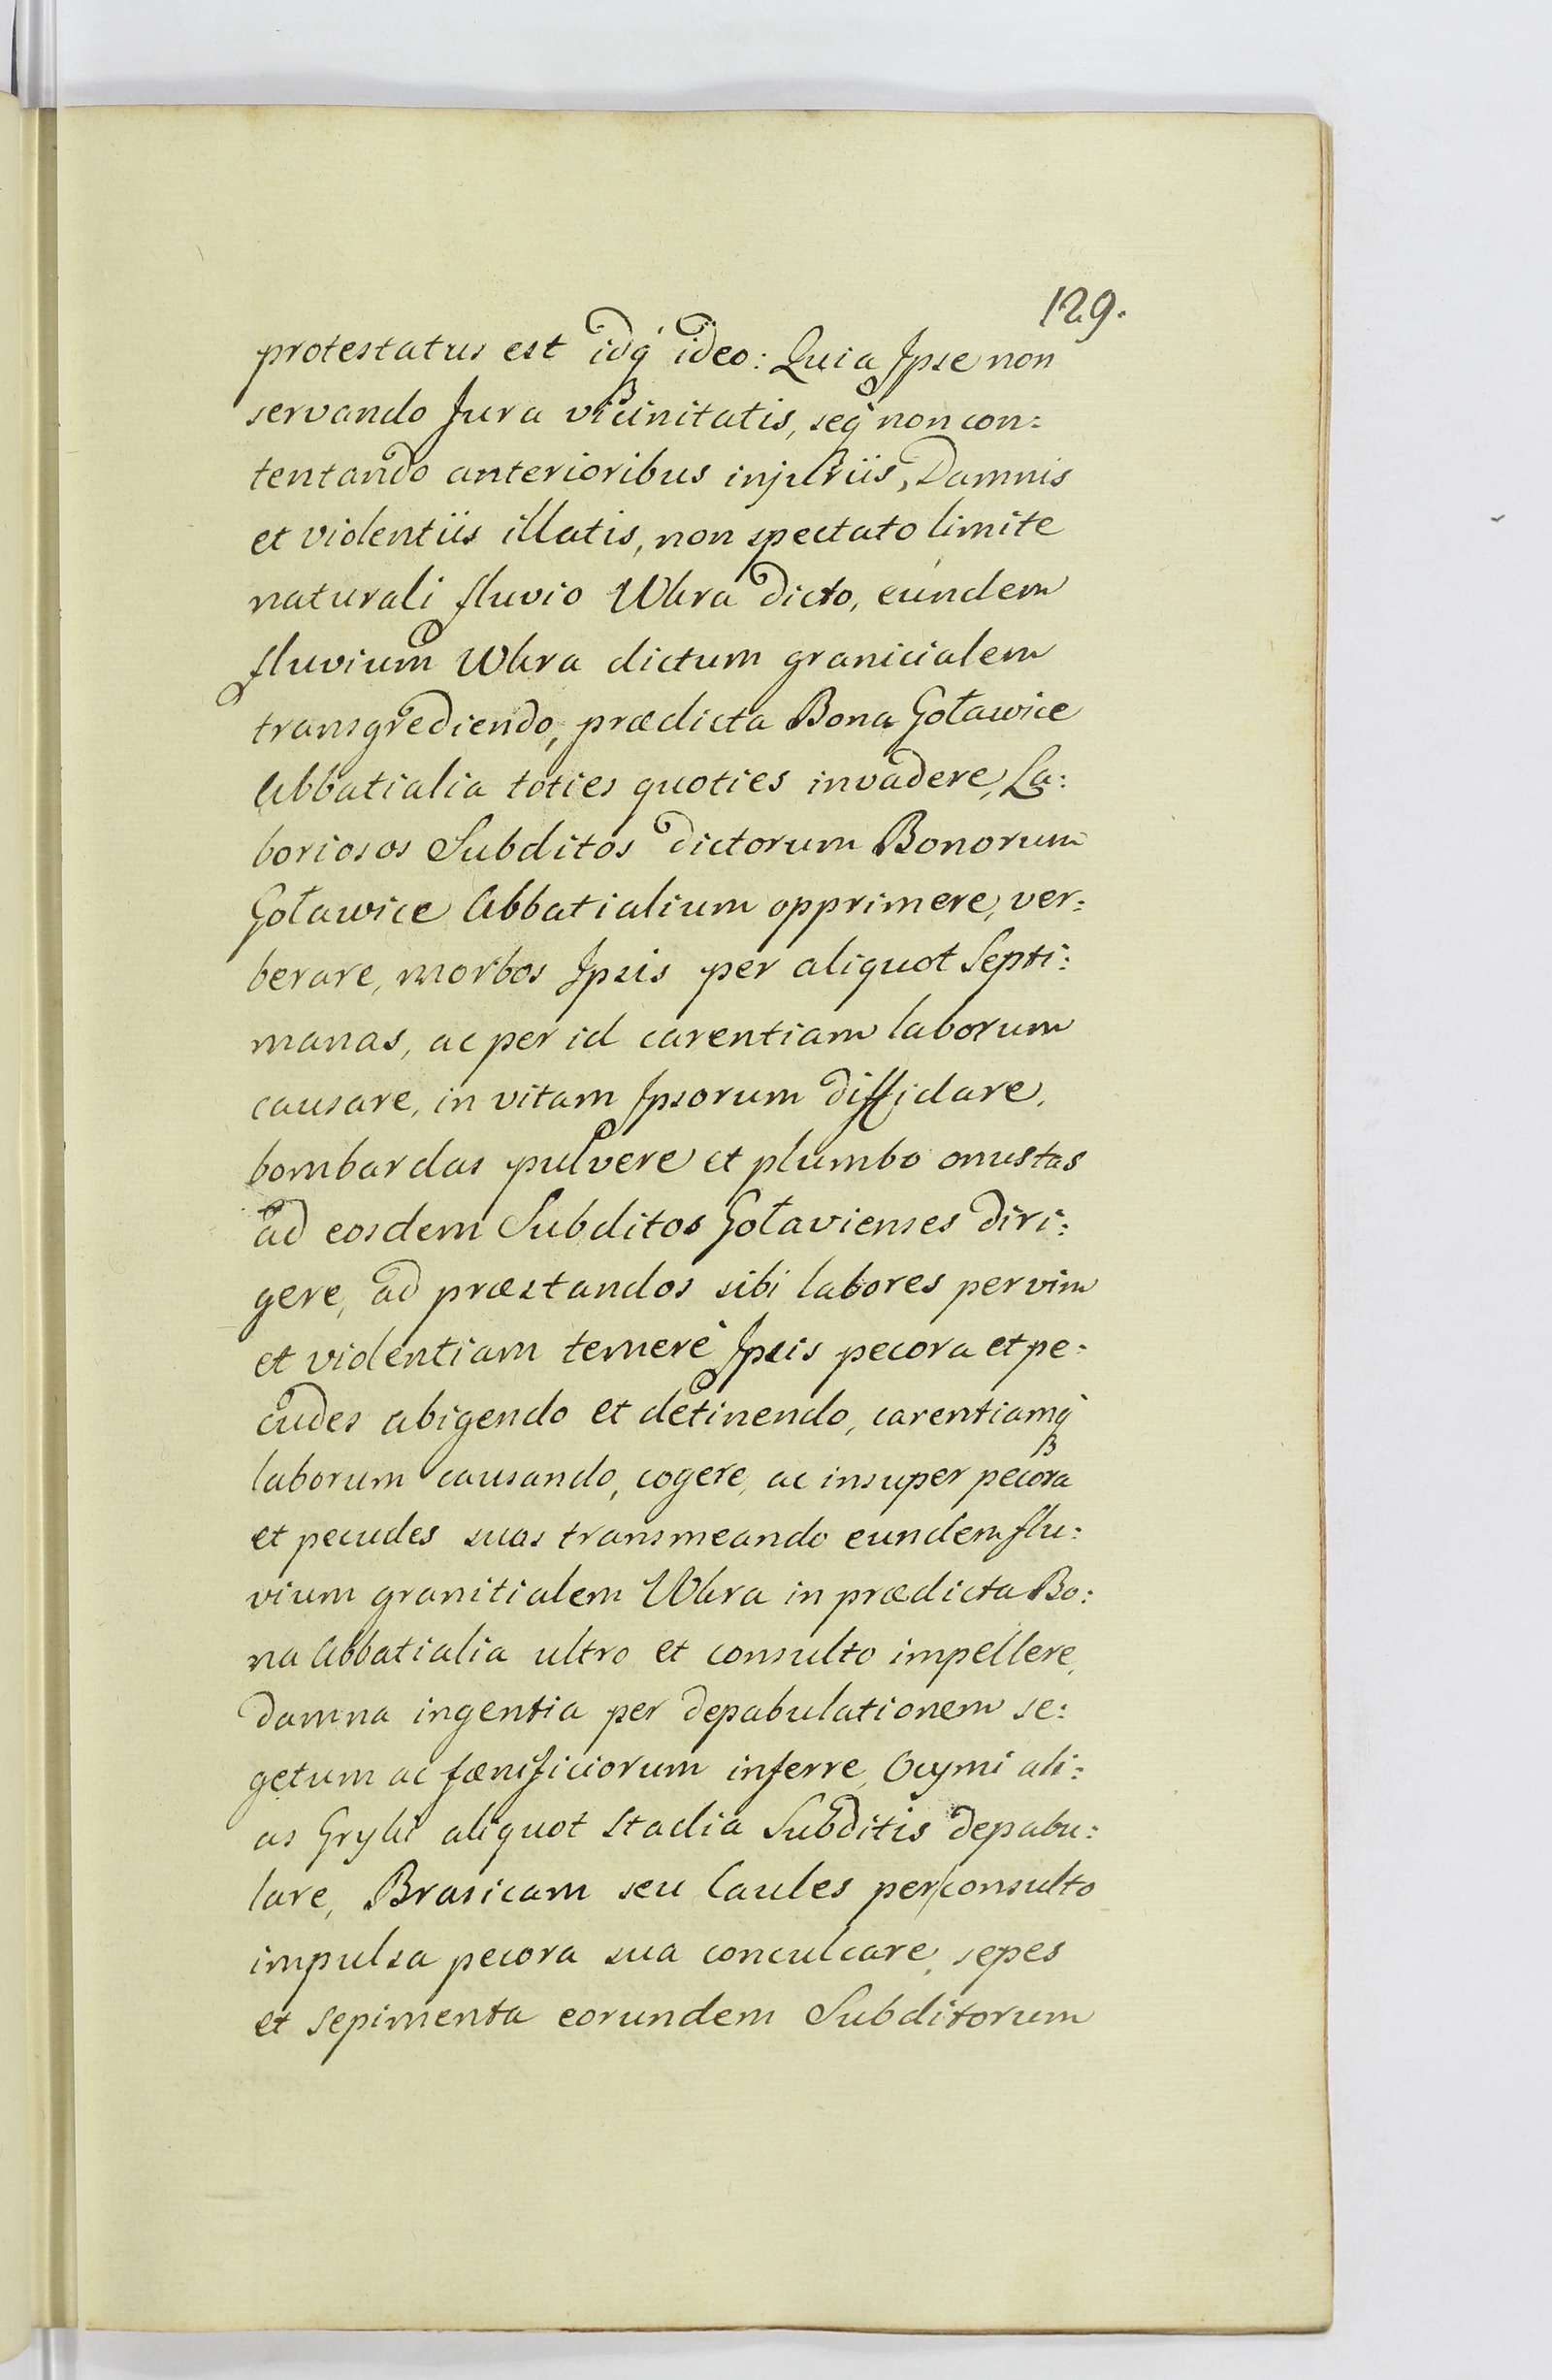 129.
protestatus est idq́ ideo: Quia Ipse non
servando Jura vicinitatis, seq́ non con:
tentando anterioribus injuriis, Damnis
et violentiis illatis, non spectato limite
naturali fluvio Wkra dicto, eundem
fluvium Wkra dictum granicialem
transgrediendo, prædicta Bona Goławice
Abbatialia toties quoties invadere, La:
boriosos Subditos dictorum Bonorum
Goławice Abbatialium opprimere, ver:
berare, morbos Ipsis per aliquot Septi:
manas, ac per id carentiam laborum
causare, in vitam Ipsorum diffidare,
bombardas pulvere et plumbo onustas
ad eosdem Subditos Goławienses diri:
gere, ad præstandos sibi labores per vim
et violentiam temerè Ipsis pecora et pe:
cudes abigendo et detinendo, carentiamq́
laborum causando, cogere, ac insuper pecora
et pecudes suas transmeando eundem flu:
vium granitialem Wkra in prædicta Bo:
na Abbatialia ultro et consulto impellere,
damna ingentia per depabulationem se:
getum ac fænificiorum inferre, Ocymi ali:
as Gryki aliquot Stadia Subditis depabu:
lare, Brasicam seu Caules per consulto
impulsa pecora sua conculcare, sepes
et sepimenta eorundem Subditorum